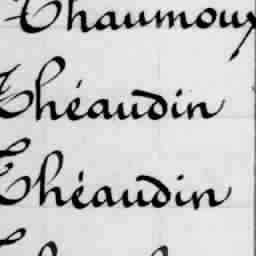 Chaumoux
Théaudin
Théaudin